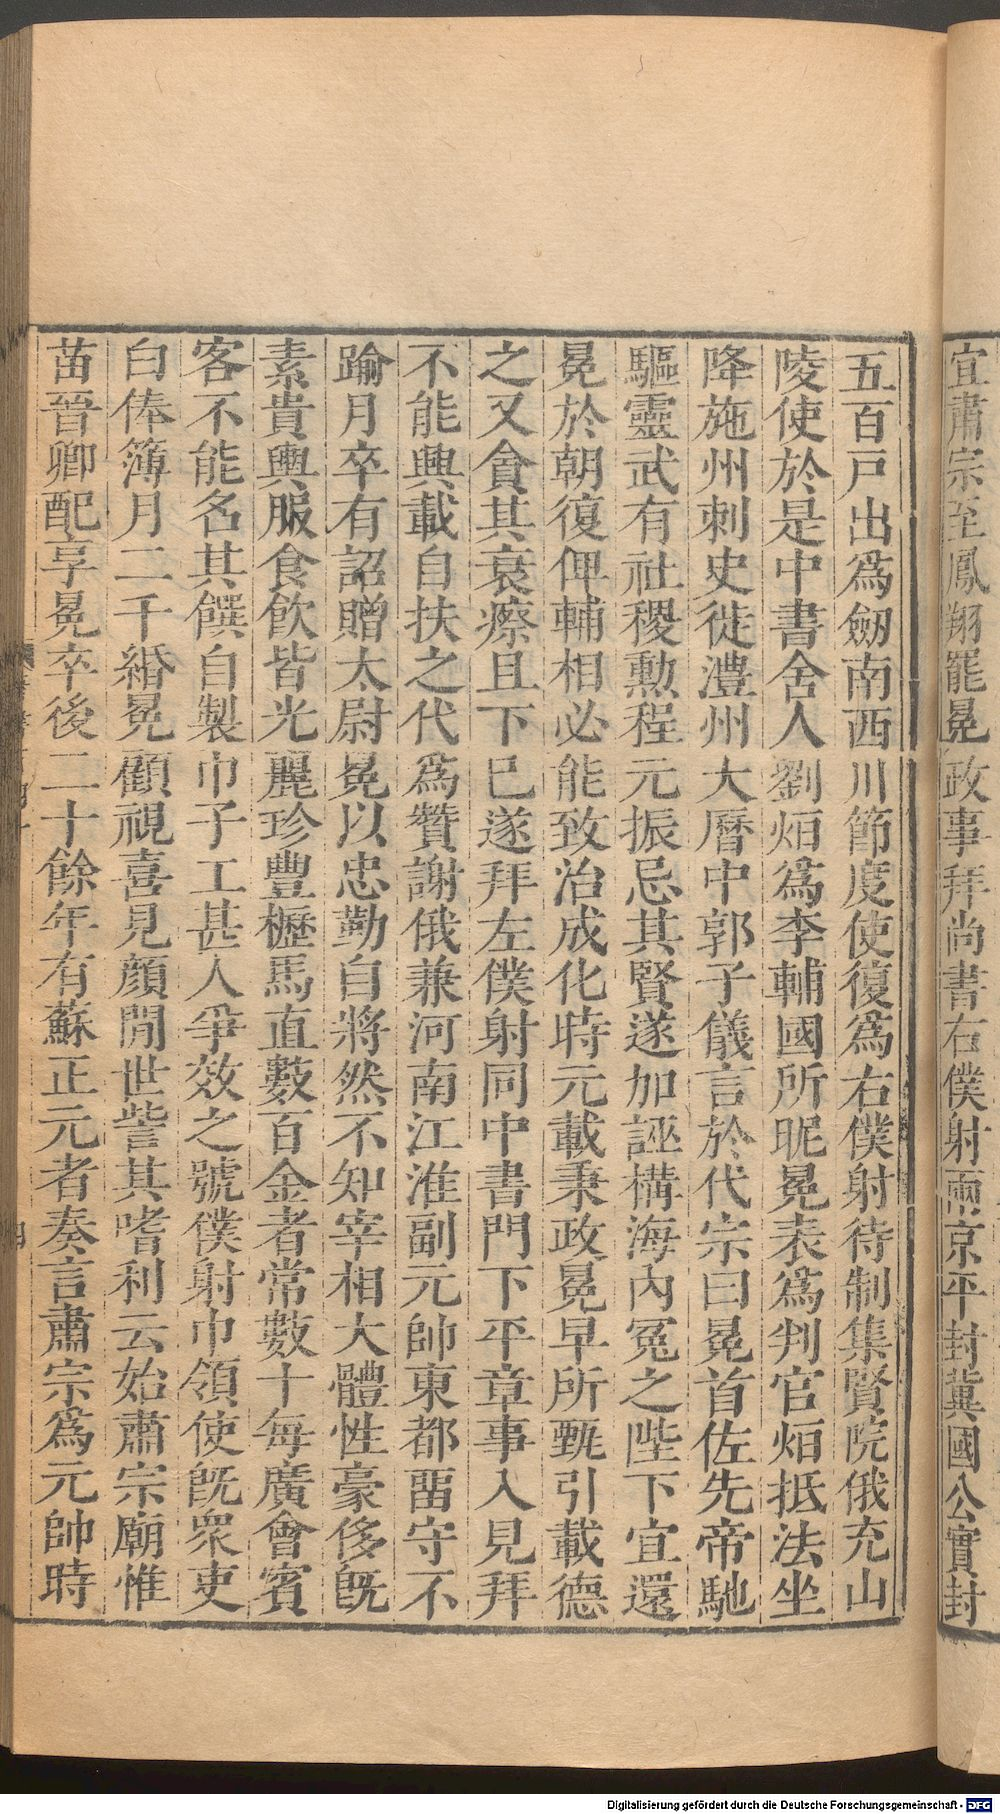 宜肅宗至鳳翔罷冕政事拜尚書右僕射兩京平封冀國公實封
五百戸出爲劒南西川節度使復爲右僕射待制集賢院俄充山
陵使於是中書舍人劉烜爲李輔國所昵冕表爲判官烜抵法坐
降施州刺史徙澧州大曆中郭子儀言於代宗曰冕首佐先帝馳
驅靈武有社稷勲程元振忌其賢遂加誣構海内冤之陛下宜還
冕於朝復俾輔相必能致治成化時元載秉政冕早所甄引載德
之又貪其衰瘵且下已遂拜左僕射同中書門下平章事入見拜
不能興載自扶之代爲贊謝俄兼河南江淮副元帥東都畱守不
踰月卒有詔贈太尉冕以忠勤自將然不知宰相大體性豪侈旣
素貴輿服食飲皆光麗珍豐櫪馬直藪百金者常數十每廣會賓
客不能名其饌自製巾子工甚人爭效之號僕射巾領使旣眾吏
白俸簿月二千緡冕顧視喜見顔閒世訾其嗜利云始肅宗廟惟
苗晉卿配享冕卒後二十餘年有蘇正元者奏言肅宗爲元帥時
Digitalisierung gefördert durch die Deutsche Forschungsgemeinschaft - DFG